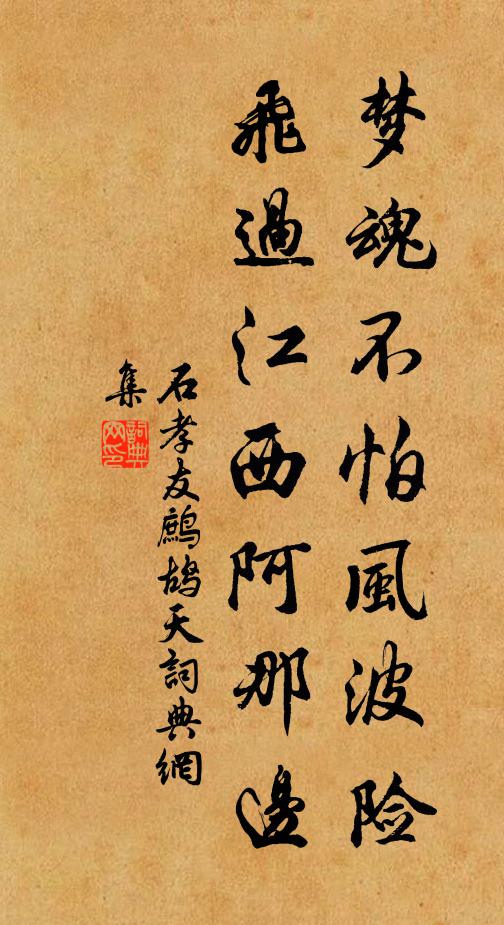 梦魂不怕風波险
飛過江西阿那邊
石孝友鷓鴣天詞典網
集
詞典網印